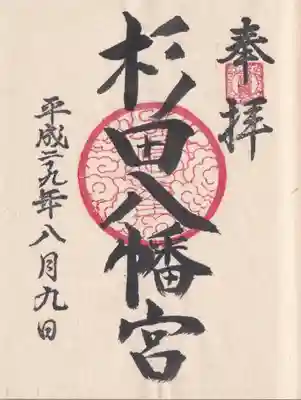 奉拝
杉田八幡宮
平成二九年八月九日